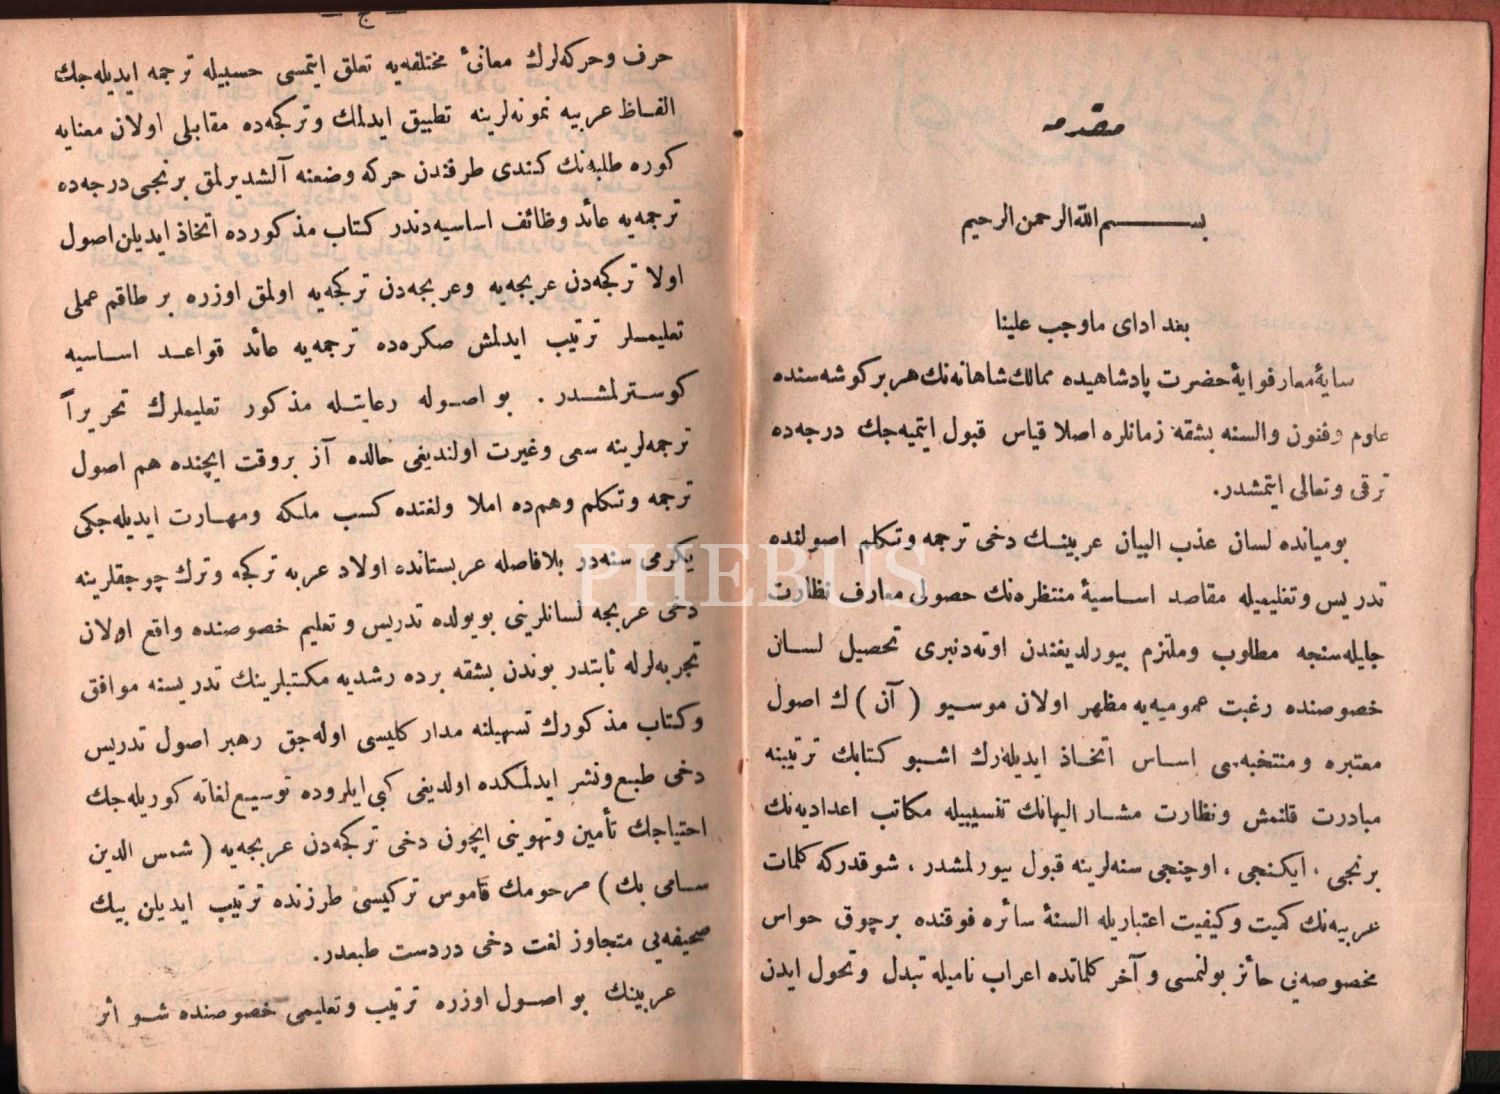 مقدمه
بسم الله الرحمن الرحيم
بعد ادای ماوجب علینا
سایهٔ معارفوایهٔ حضرت پادشاهیده ممالك شاهانه‌نك هر بر كوشه‌سنده
علوم وفنون والسنه بشقه زمانلره اصلا قیاس قبول ایتمیه‌جك درجه‌ده
ترقی وتعالی ایتمشدر.
بومیانده لسان عذب البیان عربینك دخی ترجمه وتكلم اصولنده
تدریس وتعلیمیله مقاصد اساسیهٔ منتظره‌نك حصولی معارف نظارت
جلیله‌سنجه مطلوب وملتزم بیورلدیغندن اوته‌دنبری تحصیل لسان
خصوصنده رغبت عمومیه‌یه مظهر اولان موسیو ( آن ) ك اصول
معتبره ومنتخبه‌سی اساس اتخاذ ایدیله‌رك اشبو كتابك ترتیبنه
مبادرت قلنمش ونظارت مشار الیهانك تنسیبیله مكاتب اعدادیه‌نك
برنجی ، ایكنجی ، اوچنجی سنه‌لرینه قبول بیورلمشدر ، شوقدركه كلمات
عربیه‌نك كمیت وكیفیت اعتباریله السنهٔ سائره فوقنده برچوق حواس
مخصوصه‌یی حائز بولنمسی و آخر كلماتده اعراب نامیله تبدل وتحول ایدن
— ج —
حرف وحركه‌لرك معانئ مختلفه‌یه تعلق ایتمسی حسبیله ترجمه ایدیله‌جك
الفاظ عربیه نمونه‌لرینه تطبیق ایدلمك وتركجه‌ده مقابلی اولان معنایه
كوره طلبه‌نك كندی طرفندن حركه وضعنه آلشدیرلمق برنجی درجه‌ده
ترجمه‌یه عائد وظائف اساسیه‌دندر كتاب مذكورده اتخاذ ایدیلن اصول
اولا تركجه‌دن عربجه‌یه وعربجه‌دن تركجه‌یه اولمق اوزره بر طاقم عملی
تعلیملر ترتیب ایدلمش صكره‌ده ترجمه‌یه عائد قواعد اساسیه
كوسترلمشدر . بو اصوله رعایتله مذكور تعلیملرك تحریراً
ترجمه‌لرینه سعی وغیرت اولندیغی حالده آز بروقت ایچنده هم اصول
ترجمه وتكلم وهم‌ده املا ولغتده كسب ملكه ومهارت ایدیله‌جكی
یكرمی سنه‌در بلافاصله عربستانده اولاد عربه تركجه وترك چوجقلرینه
دخی عربجه لسانلرینی بویولده تدریس و تعلیم خصوصنده واقع اولان
تجربه‌لرله ثابتدر بوندن بشقه برده رشدیه مكتبلرینك تدریسنه موافق
وكتاب مذكورك تسهیلنه مدار كلیسی اوله‌جق رهبر اصول تدریس
دخی طبع ونشر ایدلمكده اولدیغی كبی ایلروده توسیع لغاته كوریله‌جك
احتیاجك تأمین وتهوینی ایچون دخی تركجه‌دن عربجه‌یه ( شمس الدین
سامی بك ) مرحومك قاموس تركیسی طرزنده ترتیب ایدیلن بیك
صحیفه‌یی متجاوز لغت دخی دردست طبعدر.
عربینك بو اصول اوزره ترتیب وتعلیمی خصوصنده شو اثر
PHEBUS